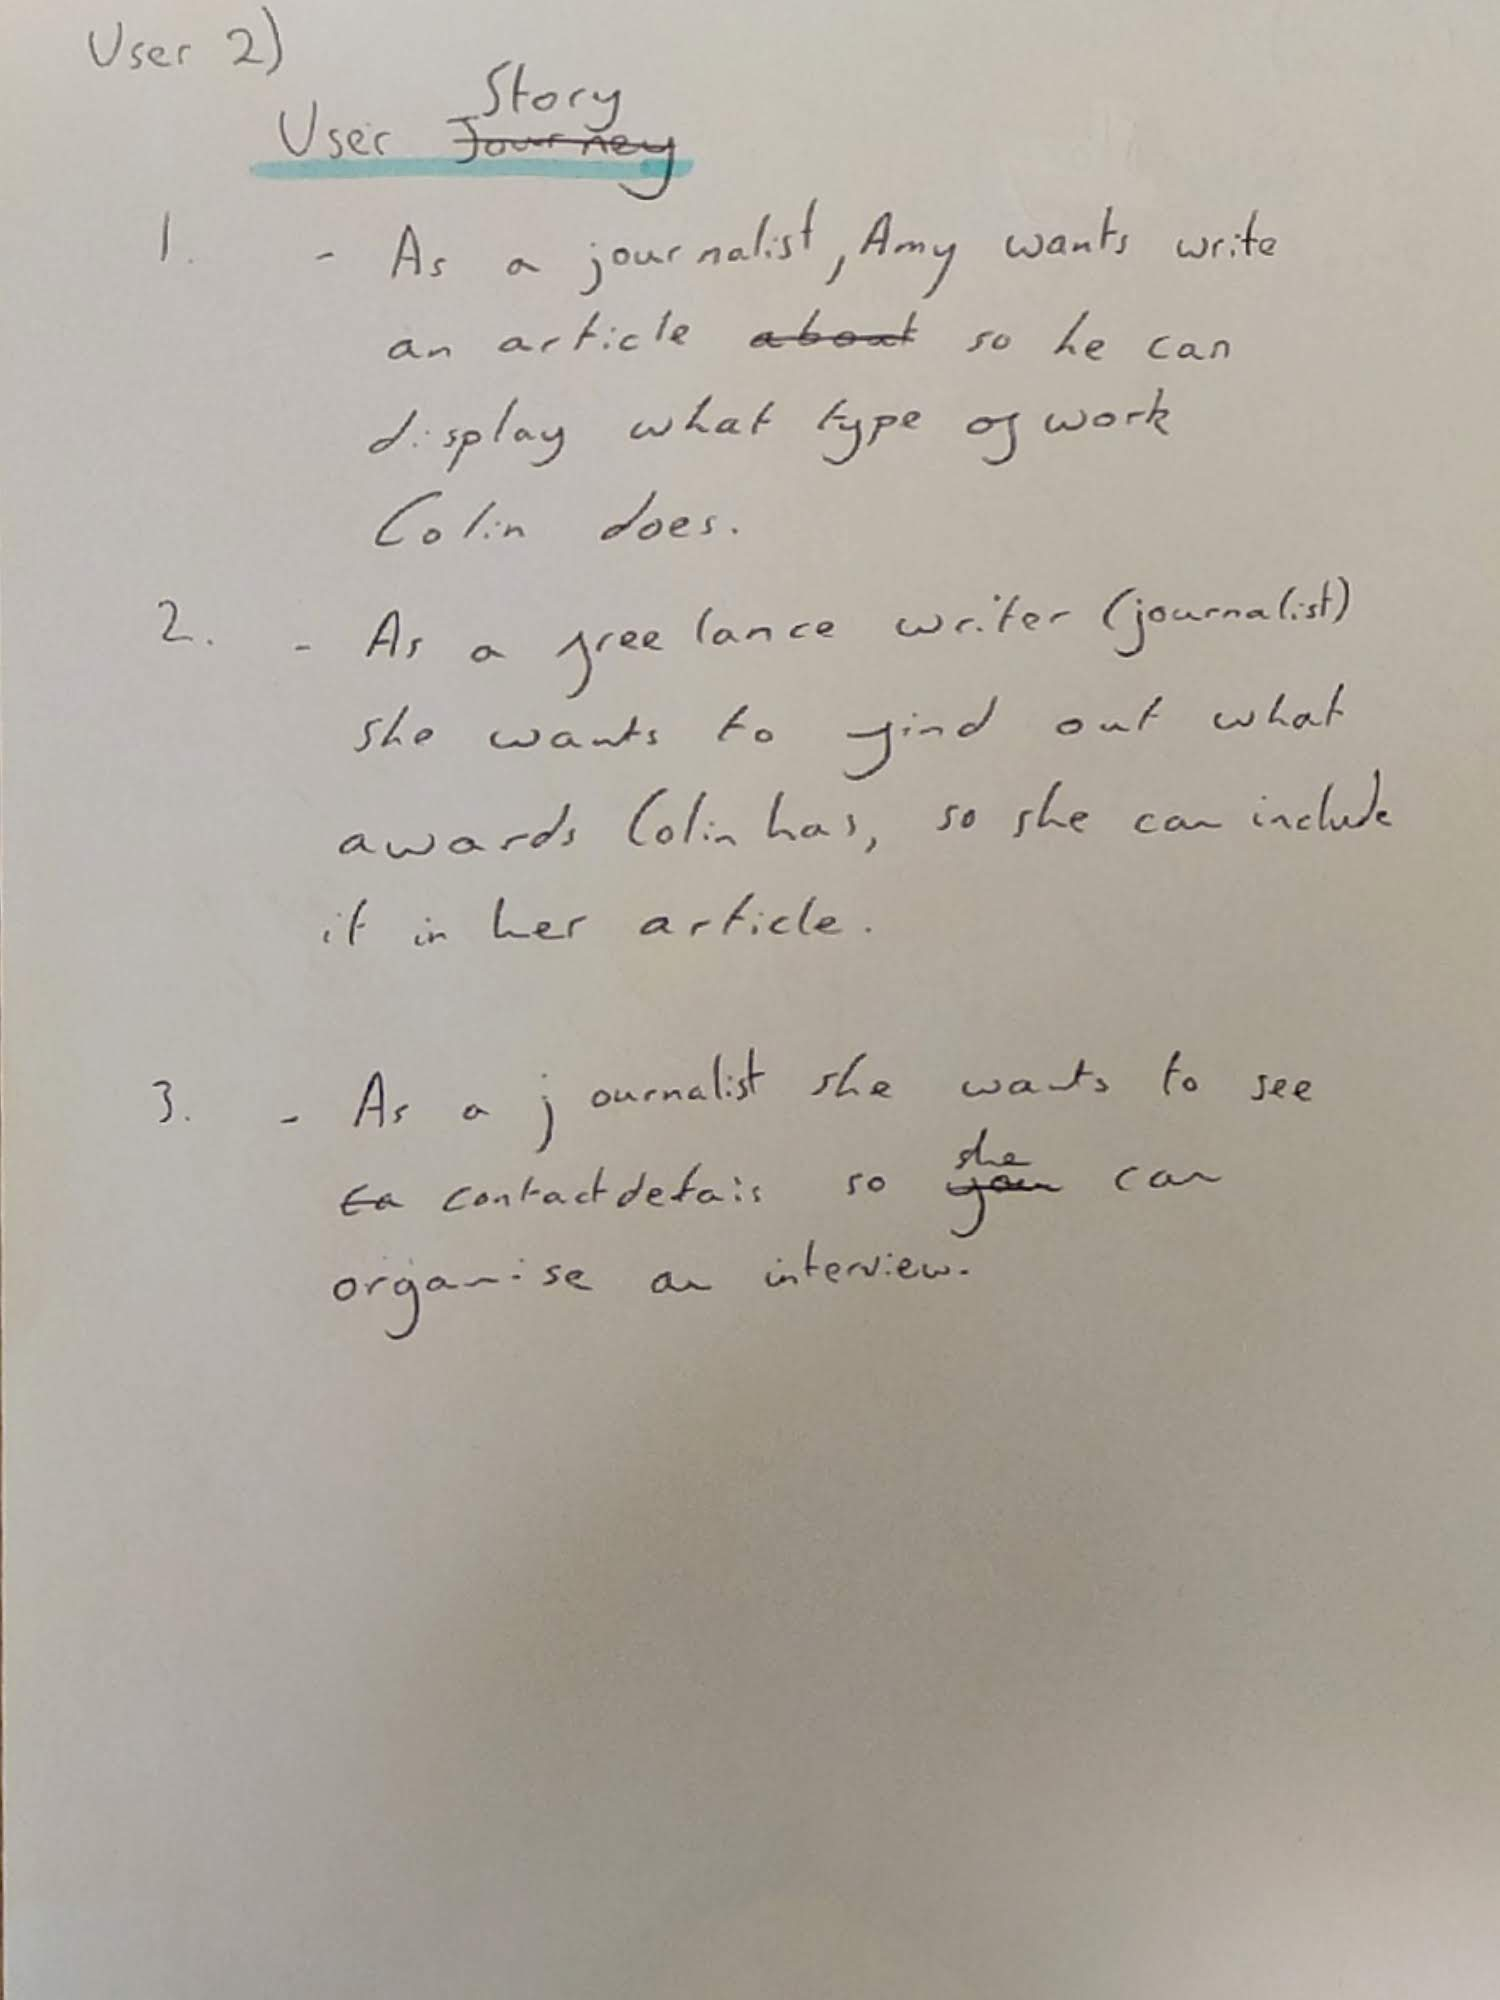 User 2)
Story
User Journey
1. - As a journalist, Amy wants write
an article about so he can
display what type of work
Colin does.
2. - As a freelance writer (journalist)
she wants to find out what
awards Colin has, so she can include
it in her article.
3. - As a journalist she wants to see
she
ca contact detais so you can
organise an interview.